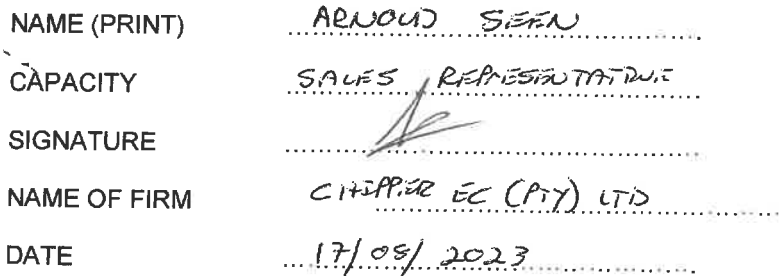 NAME (PRINT) ARNOLD SEEN
CAPACITY SALES REPRESENTATIVE
SIGNATURE
NAME OF FIRM CHIPPER EC (PTY) LTD
DATE 17/08/2023